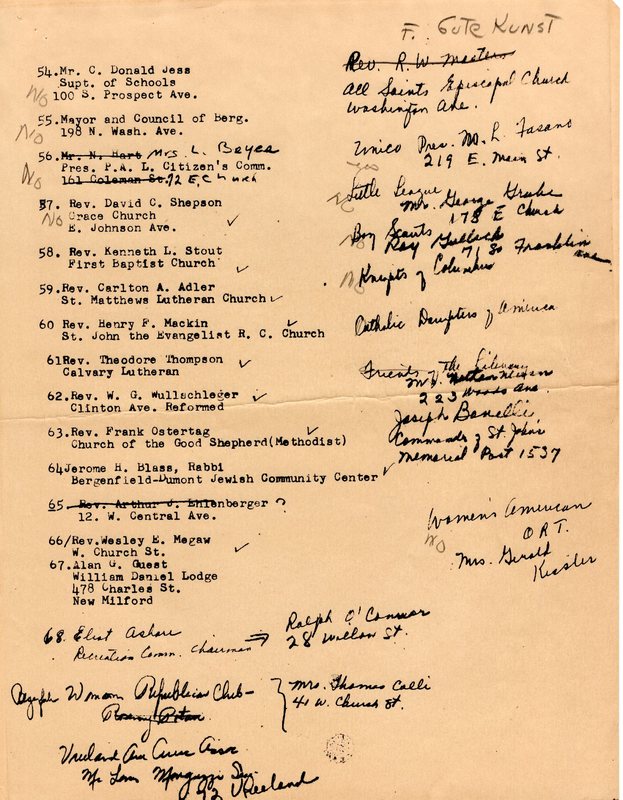 F. GUTE KUNST
54. Mr. C. Donald Jess
Supt. of Schools
No 100 S. Prospect Ave.
55. Mayor and Council of Berg.
No 198 N. Wash. Ave.
56. Mr. N. Hart Mrs. L. Beyea
Pres. P.A. L. Citizen's Comm.
No 161 Coleman St. 72 E. Church
57. Rev. David C. Shepson
No Grace Church
E. Johnson Ave. ✓
58. Rev. Kenneth L. Stout
First Baptist Church ✓
59. Rev. Carlton A. Adler
St. Matthews Lutheran Church ✓
60 Rev. Henry F. Mackin ✓
St. John the Evangelist R. C. Church
61 Rev. Theodore Thompson
Calvary Lutheran ✓
62. Rev. W. G. Wullschleger
Clinton Ave. Reformed ✓
63. Rev. Frank Ostertag ✓
Church of the Good Shepherd(Methodist)
64 Jerome H. Blass, Rabbi
Bergenfield-Dumont Jewish Community Center ✓
65 . Rev. Arthur J. Ehlenberger ?
12. W. Central Ave.
66/Rev. Wesley E. Megaw
W. Church St. ✓
67. Alan G. Guest
William Daniel Lodge
478 Charles St.
New Milford
68. Eliot
Recreation Comm. Chairman
Ralph O'Connor
28 Willow St.
Woman Republican Club-
Mrs. Thomas Colli
41 W. Church St.
Vreeland Ave
92 Vreeland
Rev. R. W. Masters
All Saints Episcopal Church
Washington Ave.
Unico Pres. M. L. Fasano
219 E. Main St.
yes
Little League
Mr. George Grube
178 E Church
Boy Scouts
Ray Gullack
71 So Franklin Ave
No Knights of Columbus
Catholic Daughters of America
Friends of the Library
223 Woods Ave
Joseph
Commander of St. John's
Memorial Post 1537
Women's American
No ORT.
Mrs. Gerald
Kessler